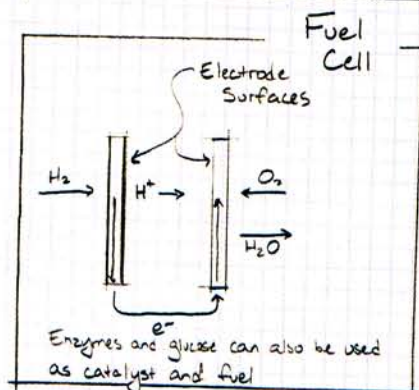 Fuel
Cell
Electrode
Surfaces
H₂
H⁺
O₂
H₂O
e⁻
Enzymes and glucose can also be used
as catalyst and fuel